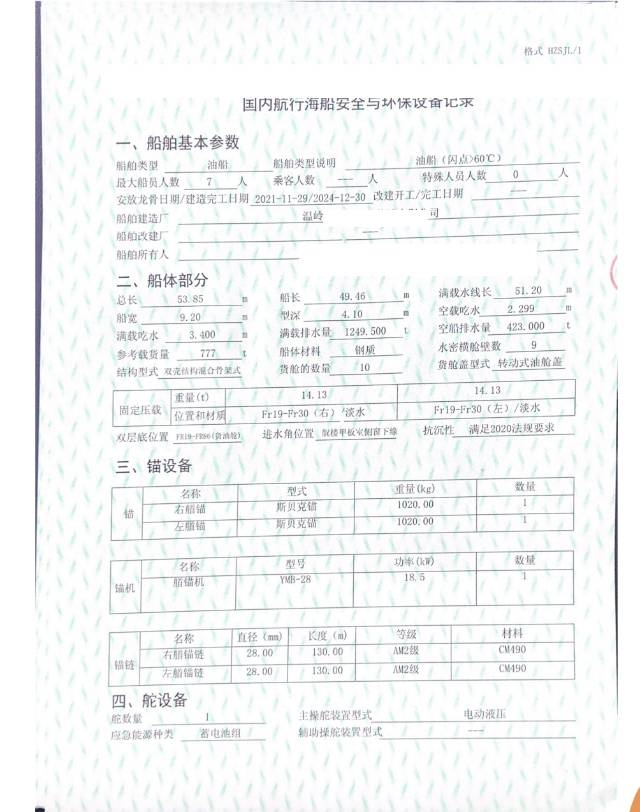 格式 HZSJL/1
国内航行海船安全与环保设备记录
一、船舶基本参数
船舶类型 油船 船舶类型说明 油船（闪点>60℃）
最大船员人数 7 人 乘客人数 --- 人 特殊人员人数 0 人
安放龙骨日期/建造完工日期 2021-11-29/2024-12-30 改建开工/完工日期 ---
船舶建造厂 温岭 司
船舶改建厂 ---
船舶所有人
二、船体部分
总长 53.85 m 船长 49.46 m 满载水线长 51.20 m
船宽 9.20 m 型深 4.10 m 空载吃水 2.299 m
满载吃水 3.400 m 满载排水量 1249.500 t 空船排水量 423.000 t
参考载货量 777 t 船体材料 钢质 水密横舱壁数 9
结构型式 双壳结构混合骨架式 货舱的数量 10 货舱盖型式 转动式油舱盖
固定压载 重量(t) 14.13 14.13
位置和材质 Fr19-Fr30（右）/淡水 Fr19-Fr30（左）/淡水
双层底位置 FR19-FR86(货油舱) 进水角位置 艉楼甲板室侧窗下缘 抗沉性 满足2020法规要求
三、锚设备
锚 名称 型式 重量(kg) 数量
右艏锚 斯贝克锚 1020.00 1
左艏锚 斯贝克锚 1020.00 1
锚机 名称 型号 功率(kW) 数量
艏锚机 YMB-28 18.5 1
锚链 名称 直径（mm） 长度（m） 等级 材料
右艏锚链 28.00 130.00 AM2级 CM490
左艏锚链 28.00 130.00 AM2级 CM490
四、舵设备
舵数量 1 主操舵装置型式 电动液压
应急能源种类 蓄电池组 辅助操舵装置型式 ---